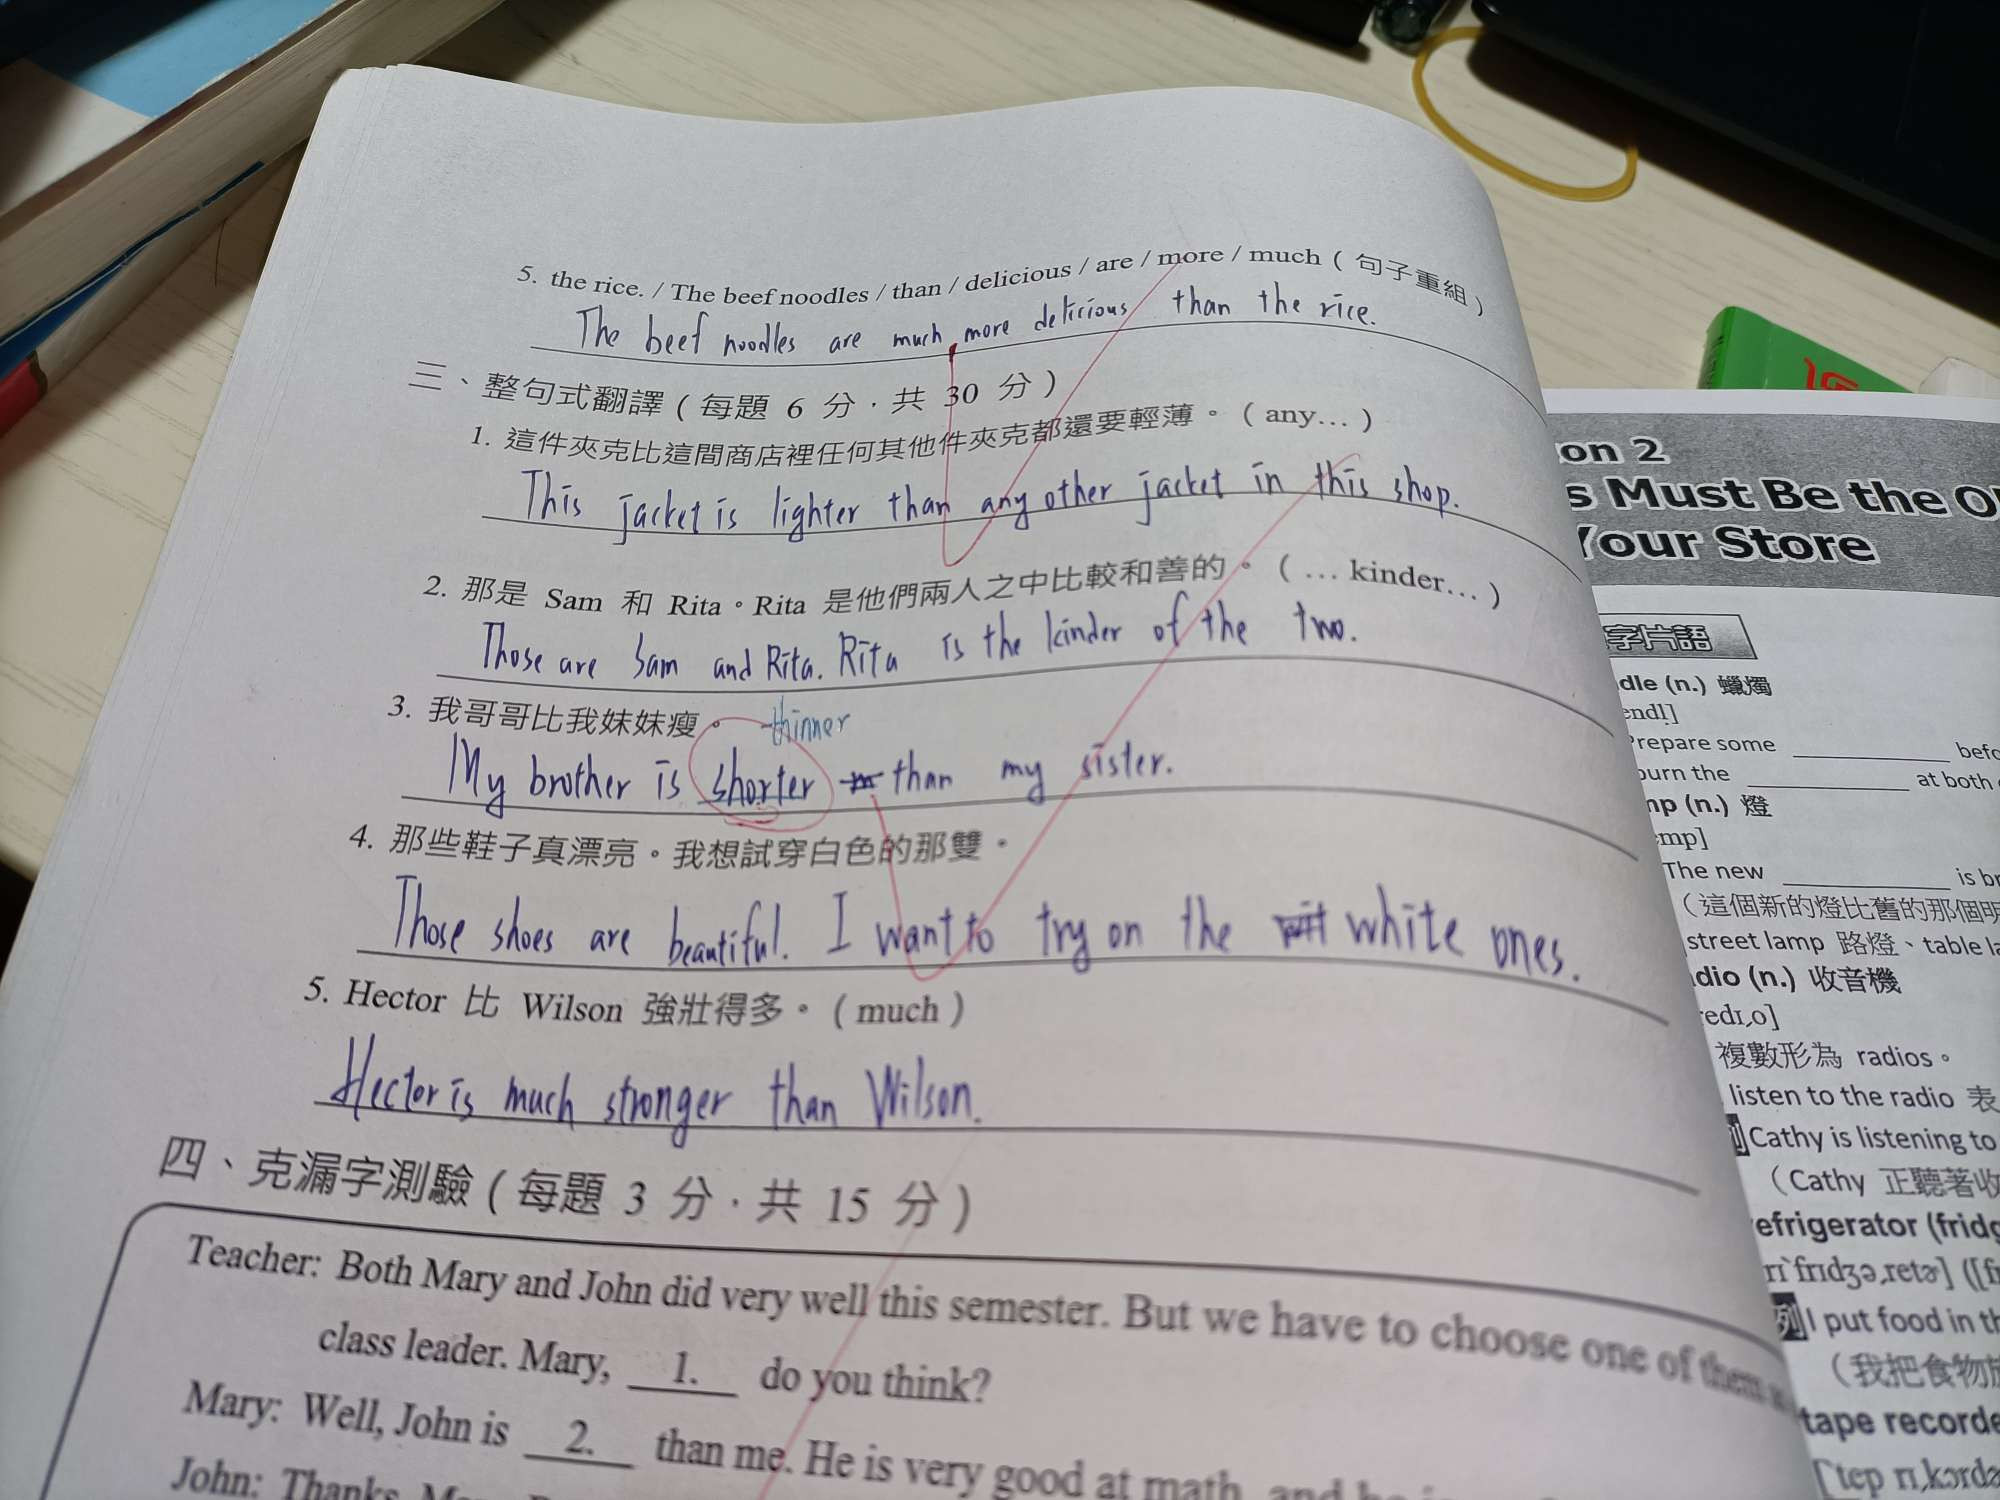 5. the rice. / The beef noodles / than / delicious / are / more / much ( 句子重組 )
The beef noodles are much more delicious than the rice.
三、整句式翻譯 ( 每題 6 分．共 30 分 )
1. 這件夾克比這間商店裡任何其他件夾克都還要輕薄。( any… )
This jacket is lighter than any other jacket in this shop.
2. 那是 Sam 和 Rita。Rita 是他們兩人之中比較和善的。( … kinder… )
Those are Sam and Rita. Rita is the kinder of the two.
3. 我哥哥比我妹妹瘦。
thinner
My brother is shorter than my sister.
4. 那些鞋子真漂亮。我想試穿白色的那雙。
Those shoes are beautiful. I want to try on the white ones.
5. Hector 比 Wilson 強壯得多。( much )
Hector is much stronger than Wilson.
四、克漏字測驗 ( 每題 3 分．共 15 分 )
Teacher: Both Mary and John did very well this semester. But we have to choose one of them
class leader. Mary, 1. do you think?
Mary: Well, John is 2. than me. He is very good at math, and he
John: Thanks,
on 2
s Must Be the
Your Store
字片語
dle (n.) 蠟燭
Prepare some
burn the at both
mp (n.) 燈
The new is
（這個新的燈比舊的那個明
street lamp 路燈、table
dio (n.) 收音機
複數形為 radios。
listen to the radio 表
Cathy is listening to
（Cathy 正聽著收
efrigerator (fridg
例 I put food in
（我把食物
tape recorde